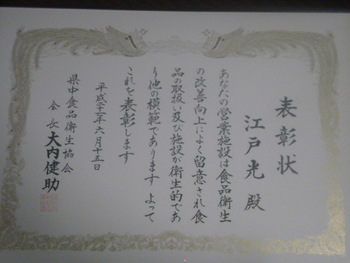 表彰状
江戸光 殿
あなたの営業施設は食品衛生
の改善向上によく留意され食
品の取扱い及び施設が衛生的であ
り他の模範であります よって
これを表彰します
平成二十年六月十五日
県中食品衛生協会
会長 大内健助